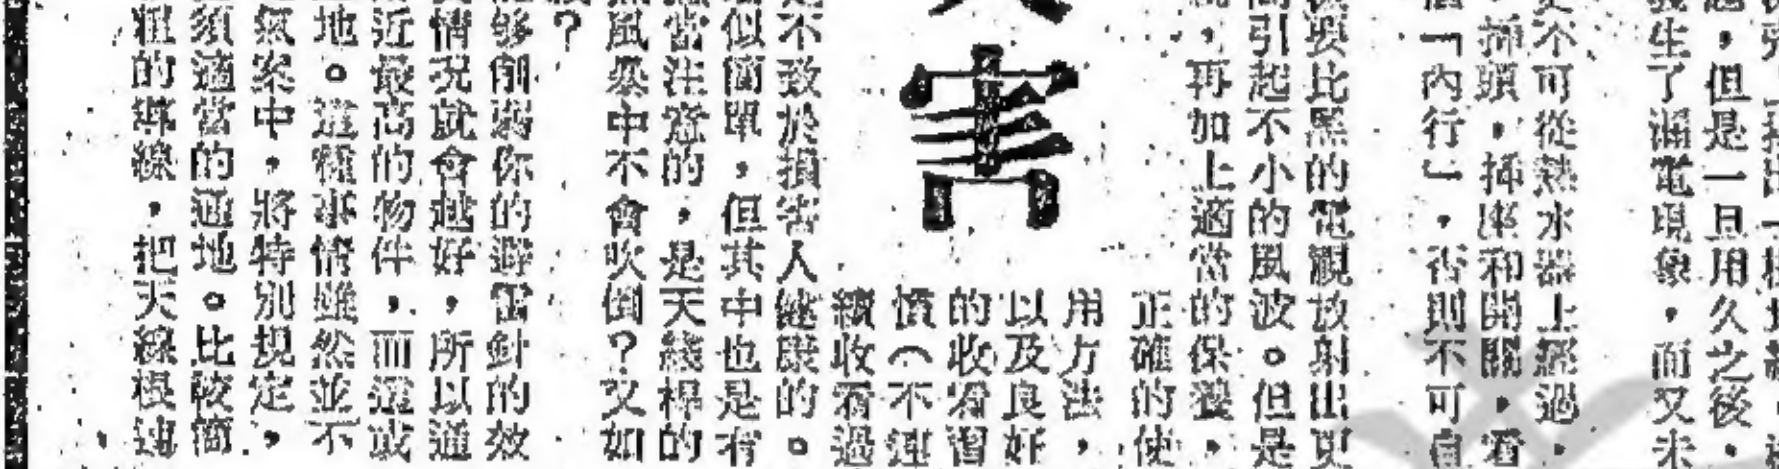 生了漏電現象，而又未
，但是一旦用久之後，
不可從熱水器上經過，
插頭，插座和開關，看
「內行」，否則不可自
要比黑的電視放射出更
引起不小的風波。但是
，再加上適當的保養，
正確的使
用方法，
以及良好
的收看習
慣（不連
續收看過
害
不致於損害人健康的。
似簡單，但其中也是有
當注意的，是天綫桿的
風暴中不會吹倒？又如
？
够削弱你的避雷針的效
情況就會越好，所以通
近最高的物件，而這或
地。這種事情雖然並不
氣案中，將特別規定，
須適當的通地。比較簡
粗的導線，把天線根連